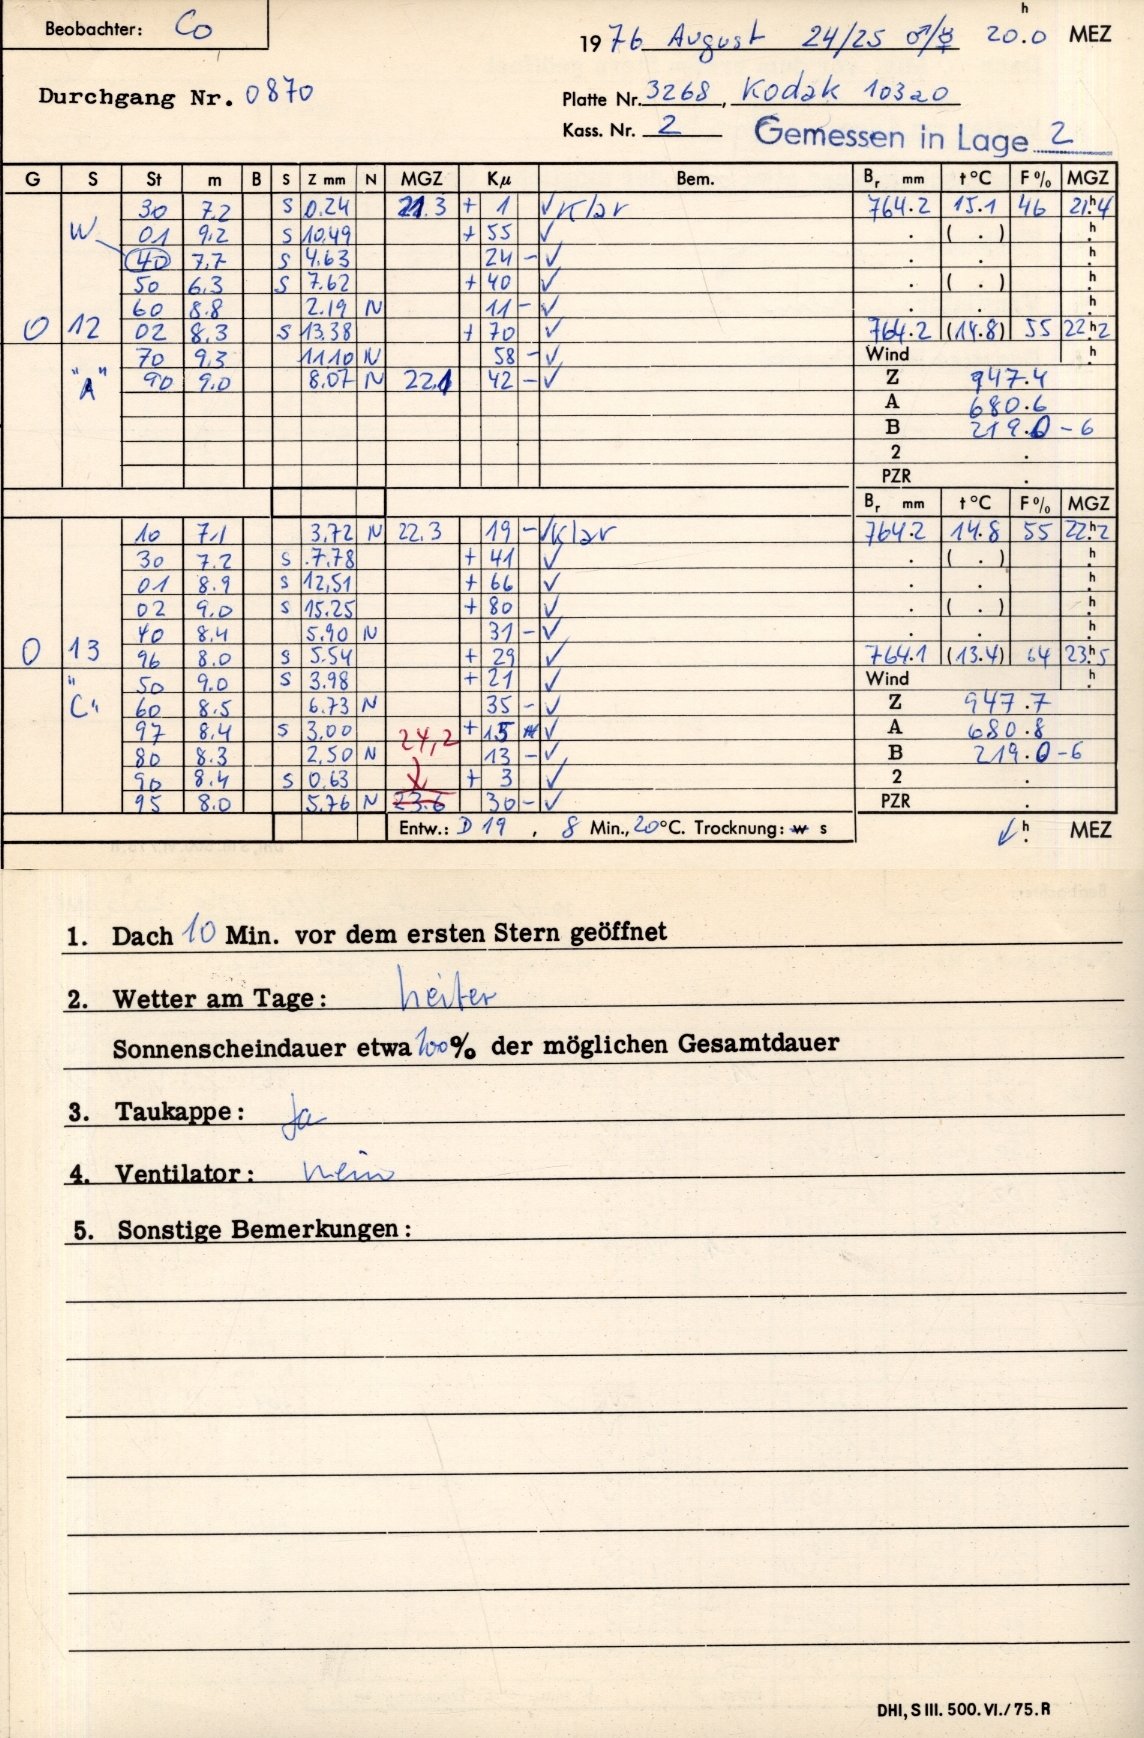 Beobachter: Co
1976 August 24/25 ♂/☿ 20.0 h MEZ
Durchgang Nr. 0870
Platte Nr. 3268, Kodak 103a0
Kass. Nr. 2 Gemessen in Lage 2
G S St m B S Z mm N MGZ Kμ Bem. Br mm t°C F% MGZ
30 7.2 S 0.24 21.3 + 1 ✓ Klar 764.2 15.1 46 21h4
W 01 9.2 S 10.49 + 55 ✓ . ( . ) h.
40 7.7 S 4.63 24 - ✓ . . h.
50 6.3 S 7.62 + 40 ✓ . ( . ) h.
60 8.8 2.19 N 11 - ✓ . . h.
0 12 02 8.3 S 13.38 + 70 ✓ 764.2 (14.8) 55 22h2
"A" 70 9.3 11.10 N 58 - ✓ Wind h.
90 9.0 8.07 N 22.1 42 - ✓ Z 947.4
A 680.6
B 219.0 - 6
2 .
PZR .
Br mm t°C F% MGZ
10 7.1 3.72 N 22.3 19 - ✓ Klar 764.2 14.8 55 22h2
30 7.2 S 7.78 + 41 ✓ . ( . ) h.
01 8.9 S 12.51 + 66 ✓ . . h.
02 9.0 S 15.25 + 80 ✓ . ( . ) h.
40 8.4 5.90 N 31 - ✓ . . h.
0 13 96 8.0 S 5.54 + 29 ✓ 764.1 (13.4) 64 23h5
"C" 50 9.0 S 3.98 + 21 ✓ Wind h.
60 8.5 6.73 N 35 - ✓ Z 947.7
97 8.4 S 3.00 24,2 + 15 ✓ A 680.8
80 8.3 2.50 N 13 - ✓ B 219.0 - 6
90 8.4 S 0.63 + 3 ✓ 2 .
95 8.0 5.76 N 23.6 30 - ✓ PZR .
Entw.: D 19, 8 Min., 20°C. Trocknung: w s ✓ h. MEZ
1. Dach 10 Min. vor dem ersten Stern geöffnet
2. Wetter am Tage: heiter
Sonnenscheindauer etwa 100% der möglichen Gesamtdauer
3. Taukappe: Ja
4. Ventilator: nein
5. Sonstige Bemerkungen:
DHI, S III. 500. VI./75. R